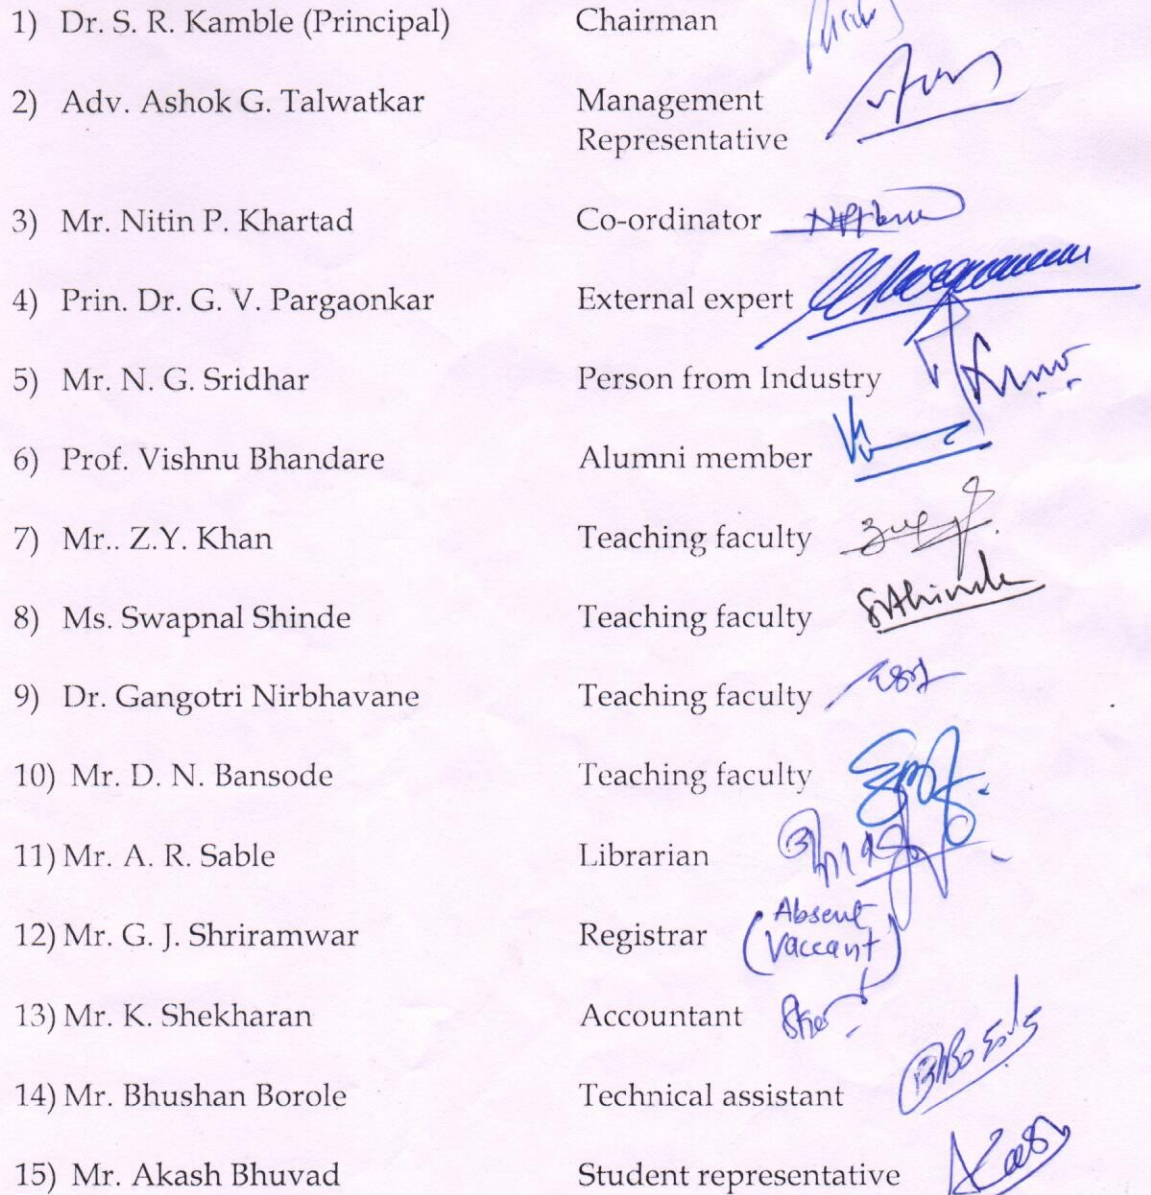 1) Dr. S. R. Kamble (Principal) Chairman
2) Adv. Ashok G. Talwatkar Management
Representative
3) Mr. Nitin P. Khartad Co-ordinator
4) Prin. Dr. G. V. Pargaonkar External expert
5) Mr. N. G. Sridhar Person from Industry
6) Prof. Vishnu Bhandare Alumni member
7) Mr.. Z.Y. Khan Teaching faculty
8) Ms. Swapnal Shinde Teaching faculty
9) Dr. Gangotri Nirbhavane Teaching faculty
10) Mr. D. N. Bansode Teaching faculty
11) Mr. A. R. Sable Librarian
12) Mr. G. J. Shriramwar Registrar (Absent
Vaccant)
13) Mr. K. Shekharan Accountant
14) Mr. Bhushan Borole Technical assistant
15) Mr. Akash Bhuvad Student representative